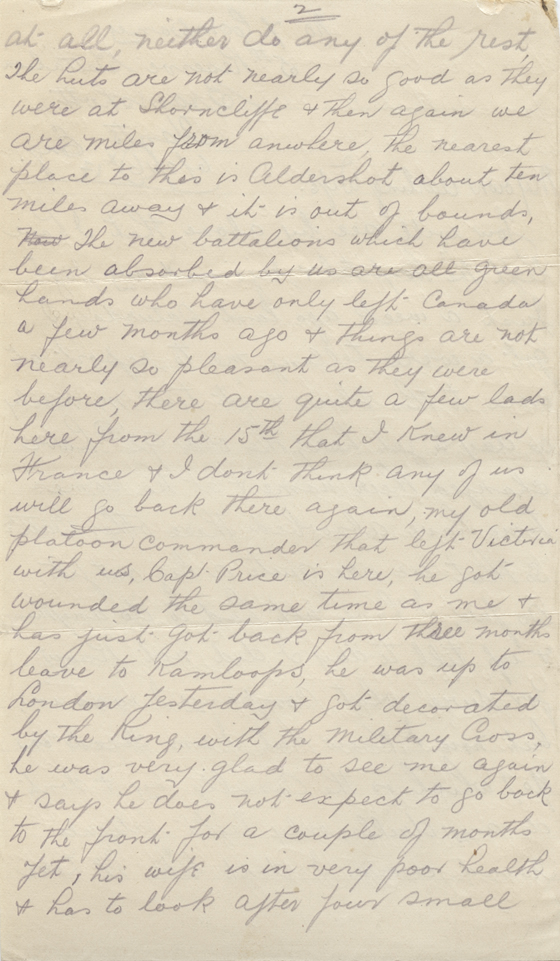 2
at all, neither do any of the rest,
The huts are not nearly so good as they
were at Shorncliffe & then again we
are miles from anwhere, the nearest
place to this is Aldershot about ten
miles away & it is out of bounds,
Now The new battalions which have
been absorbed by us are all green
hands who have only left Canada
a few months ago & things are not
nearly so pleasant as they were
before, there are quite a few lads
here from the 15th that I knew in
France & I dont think any of us
will go back there again, my old
platoon commander that left Victoria
with us, Cap' Price is here, he got
wounded the same time as me &
has just got back from three months
leave to Kamloops, he was up to
London Yesterday & got decorated
by the King, with the Military Cross,
he was very glad to see me again
& says he does not expect to go back
to the front for a couple of months
Yet, his wife is in very poor health
& has to look after four small